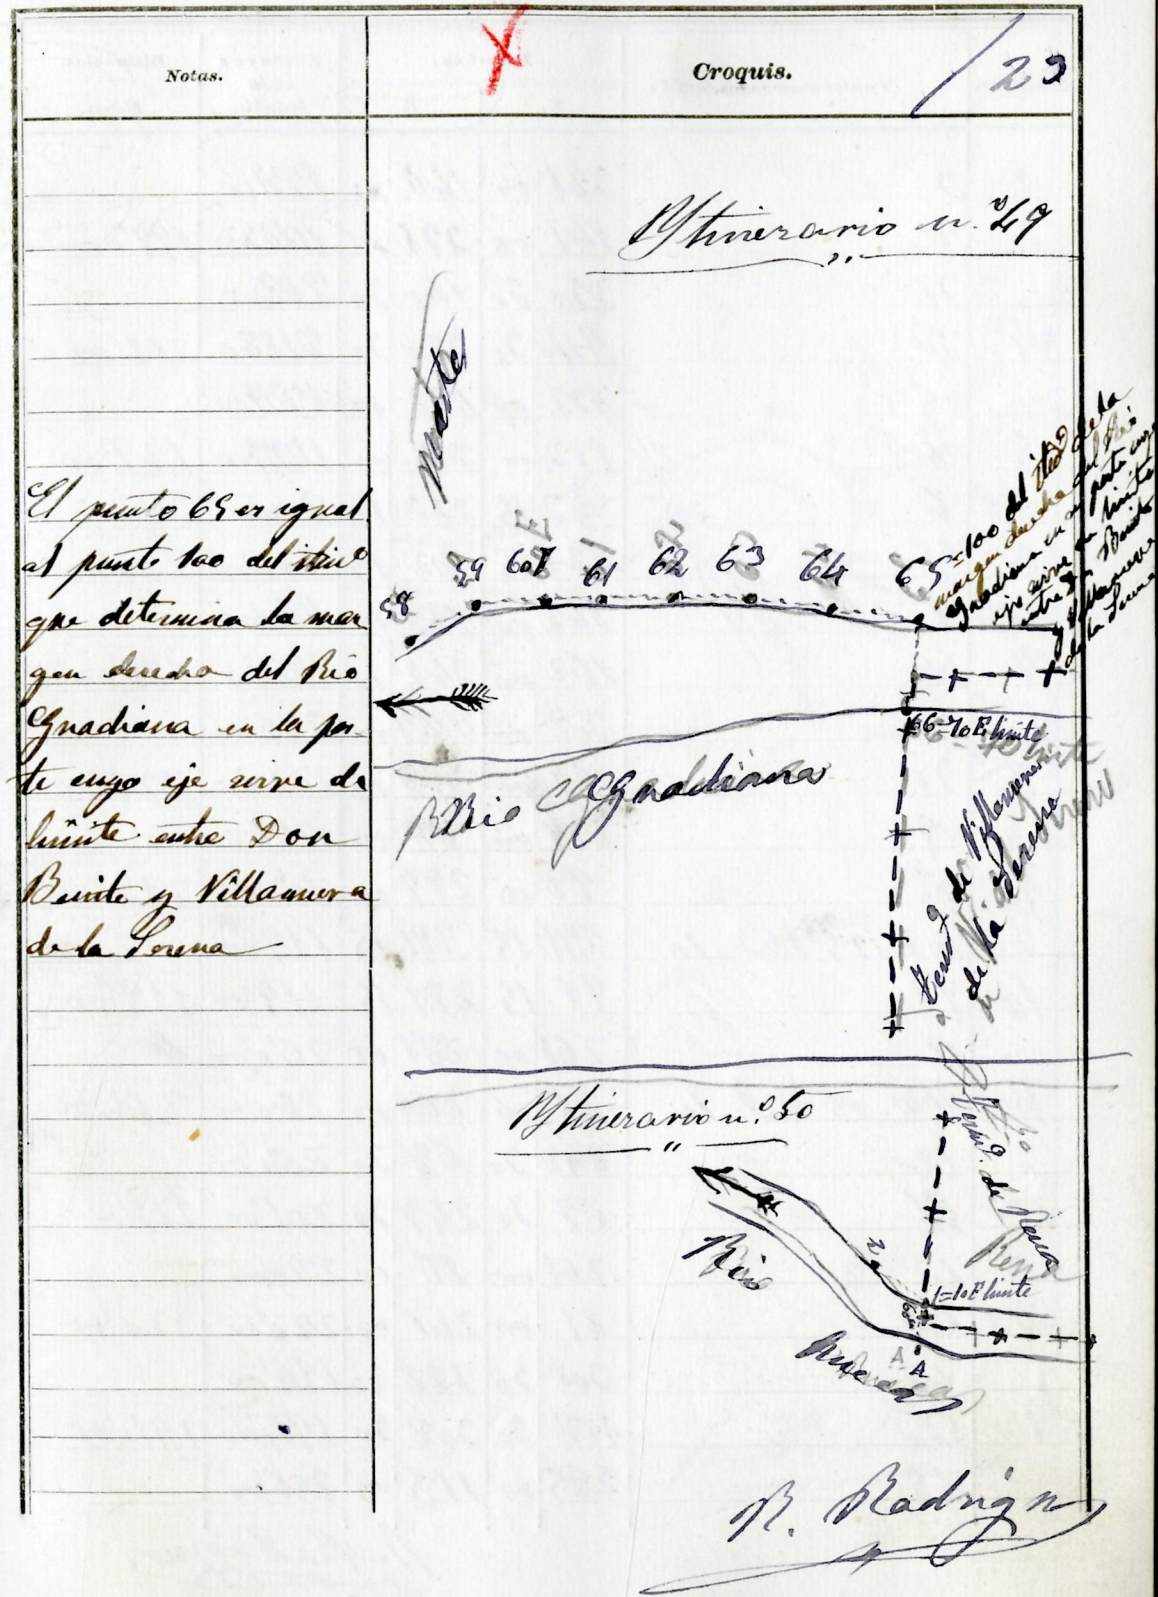 Notas.
Croquis.
/23
Ytinerario n.º 49
Norte
El punto 65 es igual
al punto 100 del itinº
que determina la mar
gen derecha del Rio
Guadiana en la par-
te cuyo eje sirve de
limite entre Don
Benito y Villanueva
de la Serena
58
59
60
61
62
63
64
65=100 del itinº de la
margen derecha del Rio
Guadiana en la parte cuyo
eje sirve de limite
entre Dn Benito
y Villanueva
de la Serena
66=70 E limite
Rio Guadiana
Termº de Villanueva
de la Serena
Ytinerario n.º 50
Termº de Rena
Rena
2
1=10 E limite
Rio
Ruecas
A
A
R. Rodrigz